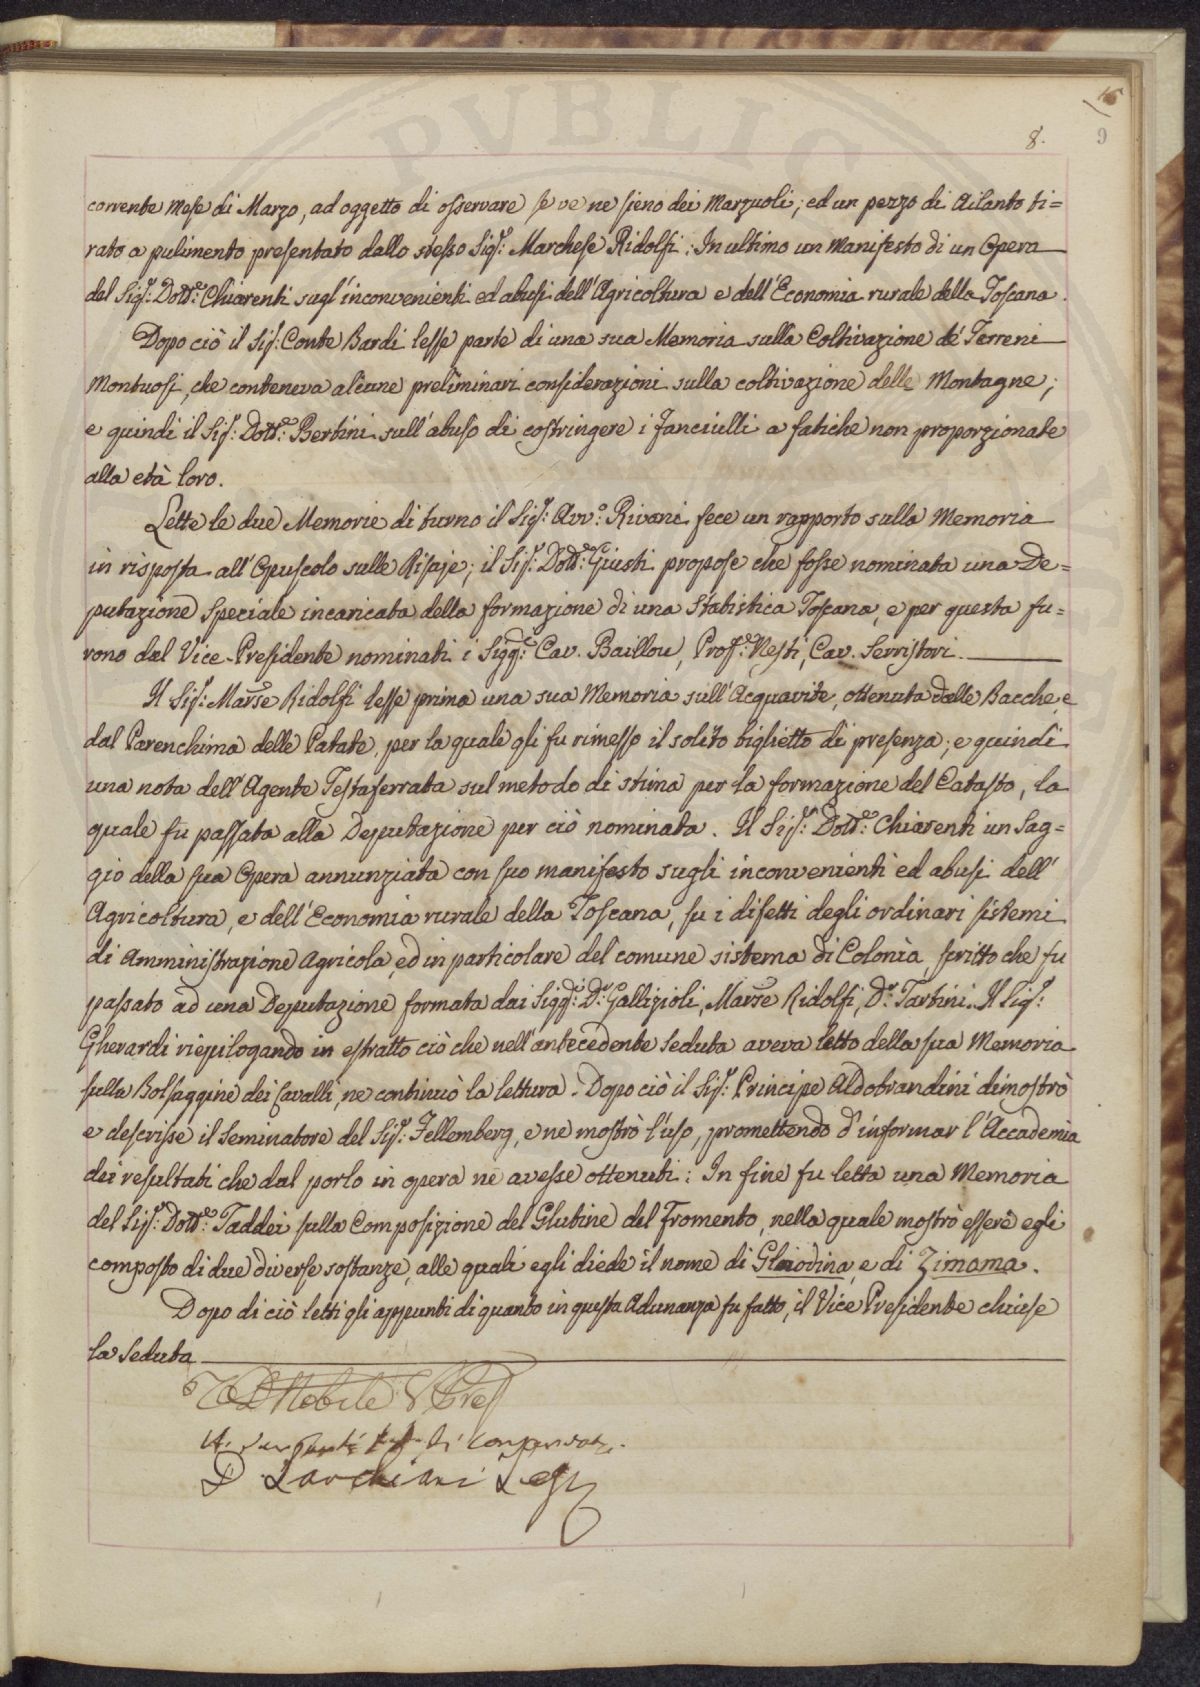 PVBLIC
15
8.
9
corrente Mese di Marzo, ad oggetto di osservare se ve ne sieno dei Marzuoli; ed un pezzo di Ailanto ti=
rato a pulimento presentato dallo stesso Sig.r Marchese Ridolfi. In ultimo un Manifesto di un Opera
del Sig.r Dott.e Chiarenti sugl'inconvenienti ed abusi dell'Agricoltura e dell'Economia rurale della Toscana.
Dopo ciò il Sig.r Conte Bardi lesse parte di una sua Memoria sulla Coltivazione de' Terreni
Montuosi, che conteneva alcune preliminari considerazioni sulla coltivazione delle Montagne;
e quindi il Sig.r Dott.e Bertini sull'abuso di costringere i fanciulli a fatiche non proporzionate
alla età loro.
Lette le due Memorie di turno il Sig.r Avv.o Rivani fece un rapporto sulla Memoria
in risposta all'Opuscolo sulle Risaje; il Sig.r Dott.e Giusti propose che fosse nominata una De=
putazione Speciale incaricata della formazione di una Statistica Toscana, e per questa fu=
rono dal Vice-Presidente nominati i Sigg.ri Cav. Baillou, Prof.e Nesti, Cav. Serristori.
Il Sig.r Marse Ridolfi lesse prima una sua Memoria sull'Acquavite, ottenuta dalle Bacche, e
dal Parenchima delle Patate, per la quale gli fu rimesso il solito biglietto di presenza; e quindi
una nota dell'Agente Testaferrata sul metodo di stima per la formazione del Catasto, la
quale fu passata alla Deputazione per ciò nominata. Il Sig.r Dott.e Chiarenti un Sag=
gio della sua Opera annunziata con suo manifesto sugli inconvenienti ed abusi dell'
Agricoltura, e dell'Economia rurale della Toscana, su i difetti degli ordinari sistemi
di Amministrazione Agricola, ed in particolare del comune sistema di Colonìa, scritto che fu
passato ad una Deputazione formata dai Sigg.ri D.r Gallizioli, Marse Ridolfi, D.r Tartini. Il Sig.r
Gherardi riepilogando in estratto ciò che nell'antecedente Seduta aveva letto della sua Memoria
sulla Bolsaggine dei Cavalli, ne continuò la lettura. Dopo ciò il Sig.r Principe Aldobrandini dimostrò
e descrisse il Seminatore del Sig.r Fellemberg, e ne mostrò l'uso, promettendo d'informar l'Accademia
dei resultati che dal porlo in opera ne avesse ottenuti: In fine fu letta una Memoria
del Sig.r Dott.e Taddei sulla Composizione del Glutine del Fromento, nella quale mostrò essere egli
composto di due diverse sostanze, alle quali egli diede il nome di Gliodina, e di Zimoma.
Dopo di ciò letti gli appunti di quanto in questa Adunanza fu fatto, il Vice Presidente chiuse
la Seduta
Nobile V. Pres
D